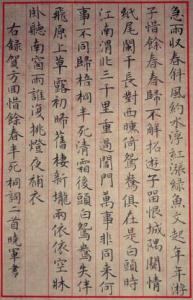 急雨收春斜風約水浮紅漲綠魚文起年年游
子惜餘春春歸不解招遊子留恨城隅關情
紙尾闌干長對西曛倚鴛鴦俱是白頭時
江南渭北三千里重過閶門萬事非同來何
事不同歸梧桐半死清霜後頭白鴛鴦失伴
飛原上草露初晞舊棲新壠兩依依空牀
卧聽南窗雨誰復挑燈夜補衣
右錄賀方回惜餘春半死桐詞二首曉軍書